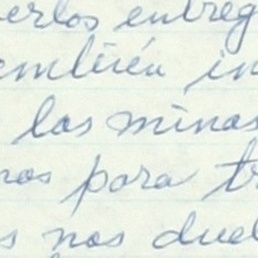 erlos entreg
también in
las minas
nos para tr
s nos duel